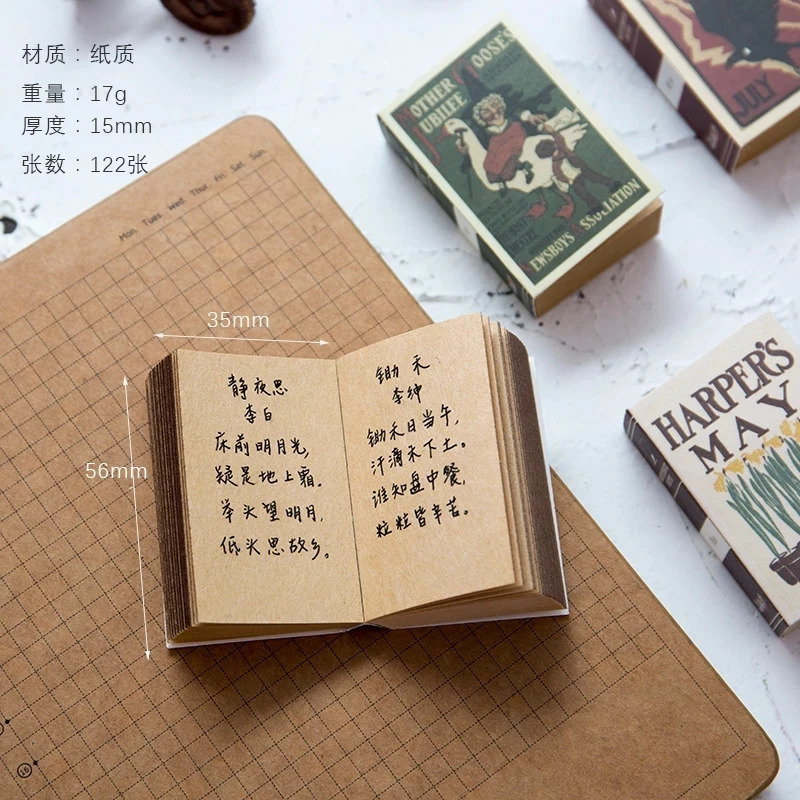 材质：纸质
重量：17g
厚度：15mm
张数：122张
Mon. Tues. Wed. Thur. Fri. Sat. Sun.
35mm
56mm
静夜思
李白
床前明月光,
疑是地上霜。
举头望明月,
低头思故乡。
锄禾
李绅
锄禾日当午,
汗滴禾下土。
谁知盘中餐,
粒粒皆辛苦。
MOTHER GOOSE'S
JUBILEE
NEWSBOYS ASSOCIATION
JULY
HARPER'S
MAY